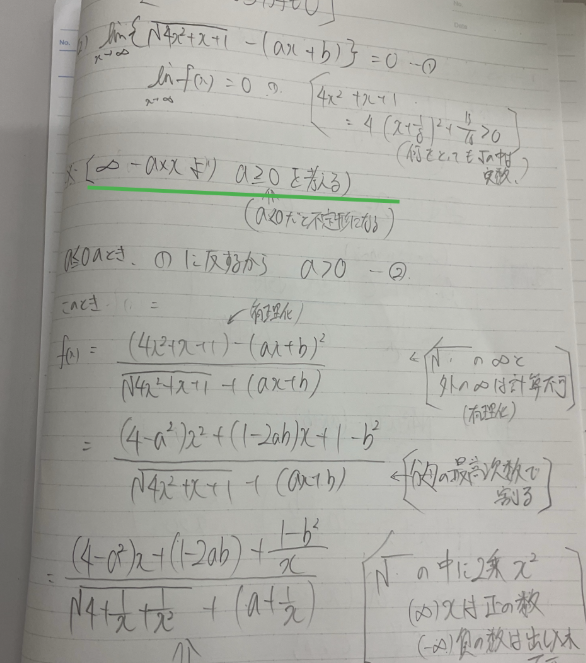 No.
lim{√4x²+x+1 - (ax+b)} = 0 …①
x→∞
lim f(x) = 0
x→∞
4x²+x+1
= 4(x+1/8)²+15/16>0
[∞ - a×x より a≥0 を考える)
(a<0だと不定形になる)
a≤0のとき、①に反するから a>0 …②
このとき =
↙有理化)
f(x) = (4x²+x+1)-(ax+b)² / √4x²+x+1 + (ax+b)
←[√ の∞と
外の∞は計算不可
(有理化)
= (4-a²)x²+(1-2ab)x+1-b² / √4x²+x+1 + (ax+b)
←[分母の最高次数で
割る
= (4-a²)x+(1-2ab)+1-b²/x / √4+1/x+1/x² + (a+1/x)
√ の中に2乗 x²
(∞)xは正の数
(-∞)負の数は